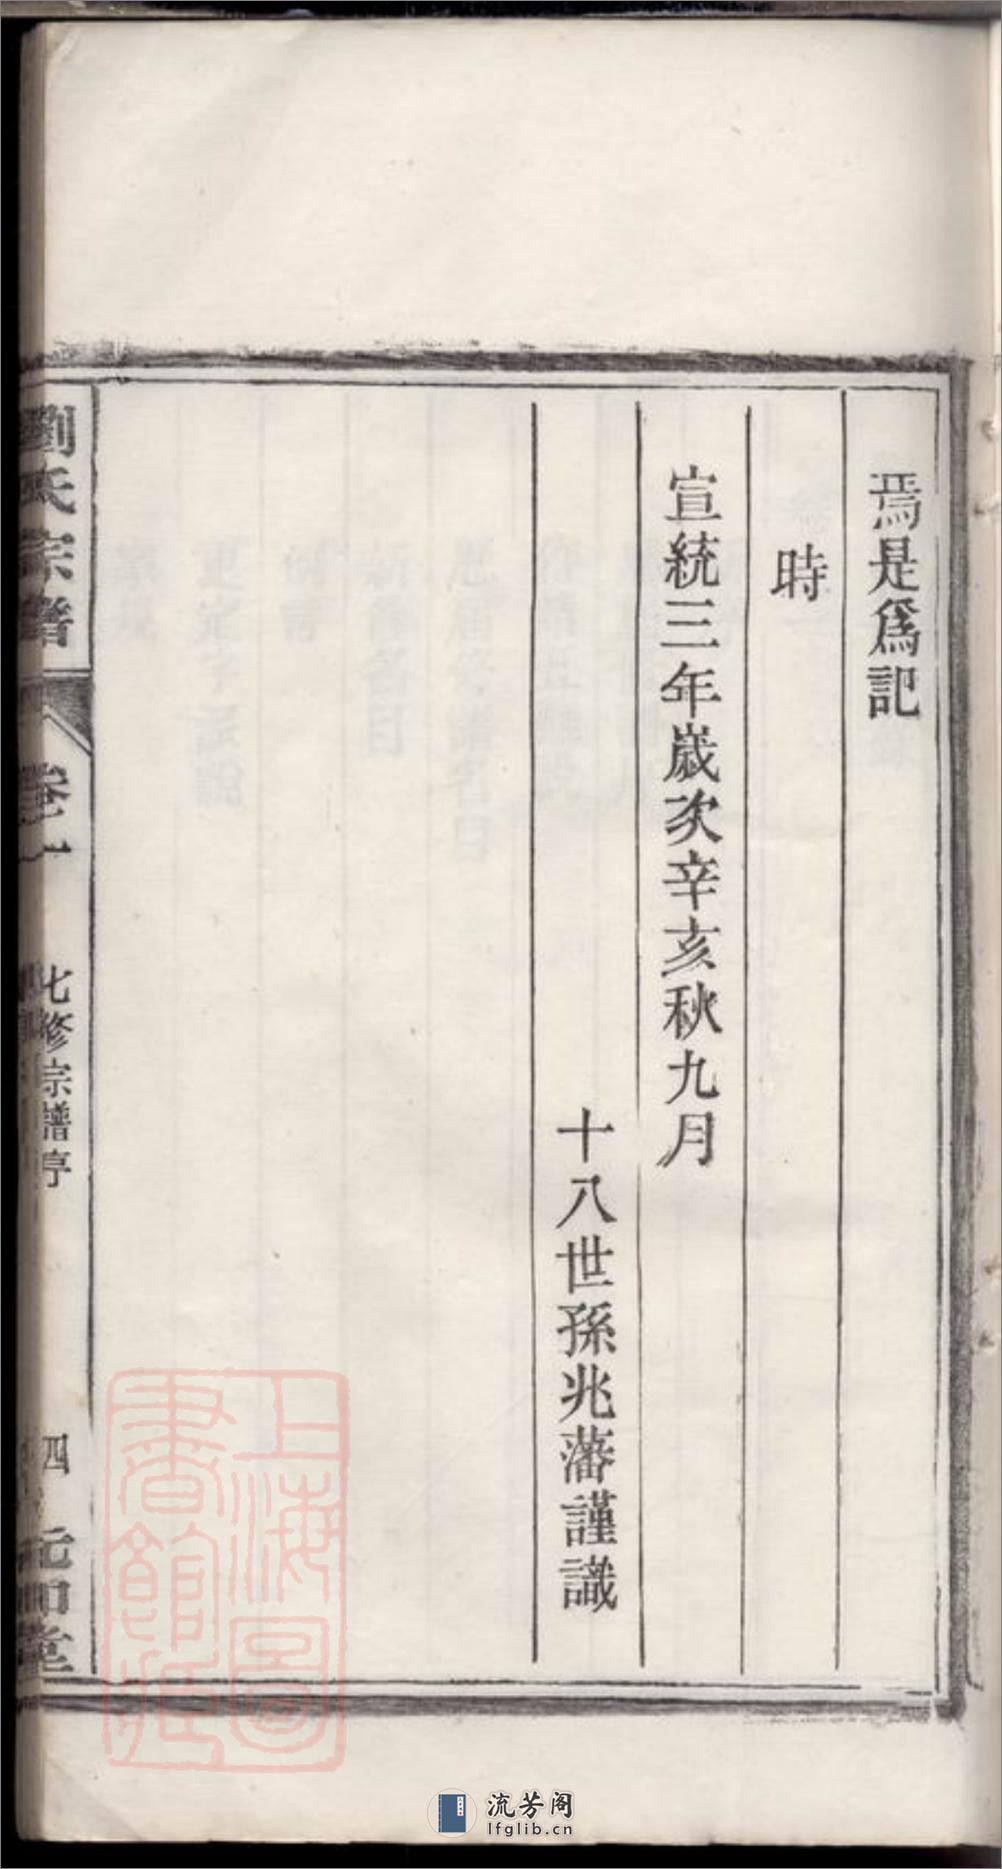 焉是爲記
時
宣統三年歲次辛亥秋九月
十八世孫兆藩謹識
劉氏宗譜
卷一
七修宗譜序
四
元和堂
上海圖書館藏
流芳阁
lfglib.cn